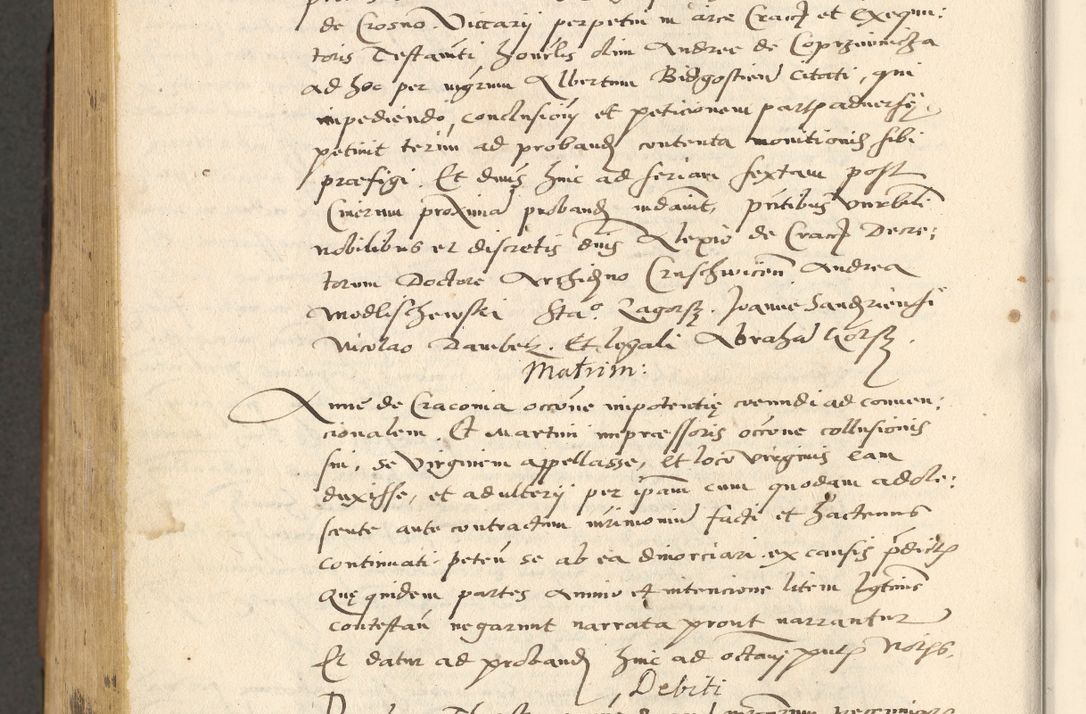 de Crosno Viccarÿ perpetui in arce Crac̃ et Exequu:
toris Testam̃ti, honẽlis olim Andree de Coprziwnicza
ad hoc per nigrum Albertum Bidgostien̄ citati, qui
impediendo, conclusioñ et peticionem partis adversę,
petiuit ter̃um ad proband̄ contenta monitionis sibi
præfigi. Et dñus hinc ad feriam sextam post
Cinerum proxima proband̄ mdauit, pñtibus vnrbli
nobilibus et discretis dñis Alexio de Crac̃ Decre:
torum Doctore Archidno Cruschwicen̄ Andrea
Modlischewski Sta° Zagorsz. Joanne Sandziensi
Nicolao Dambek. Et legali Abraha Gorsz.
Matrim:
Anne de Craconia occõne impotentię coeundi ad conuen:
cionalem Et Martini impræssoris occõne collusionis
sui, se Virginem appellasse, et loco virginis eam
duxisse, et adulterÿ per ip̃am cum quodam adole:
scente ante contractum mr̃imonium facti et hactenus
continuati peteñ se ab ea diuorciari ex causis p̃dictis
Quę quidem partes animo et intencione litem lĝtime
contestañ negarunt narrata prout narrantur
Et datur ad proband̄ hinc ad octauã
Debiti